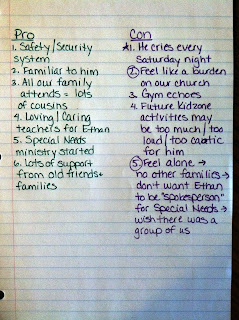 Pro
1. Safety/Security
system
2. Familiar to him
3. All our family
attends = lots
of cousins
4. Loving/Caring
teachers for Ethan
5. Special Needs
ministry started
6. Lots of support
from old friends +
families
Con
★1. He cries every
Saturday night
2. Feel like a burden
on our church
3. Gym echoes
4. Future Kidzone
activities may
be too much/too
loud/too caotic
for him
5. Feel alone →
no other families →
don't want Ethan
to be "spokesperson"
for Special Needs →
wish there was a
group of us